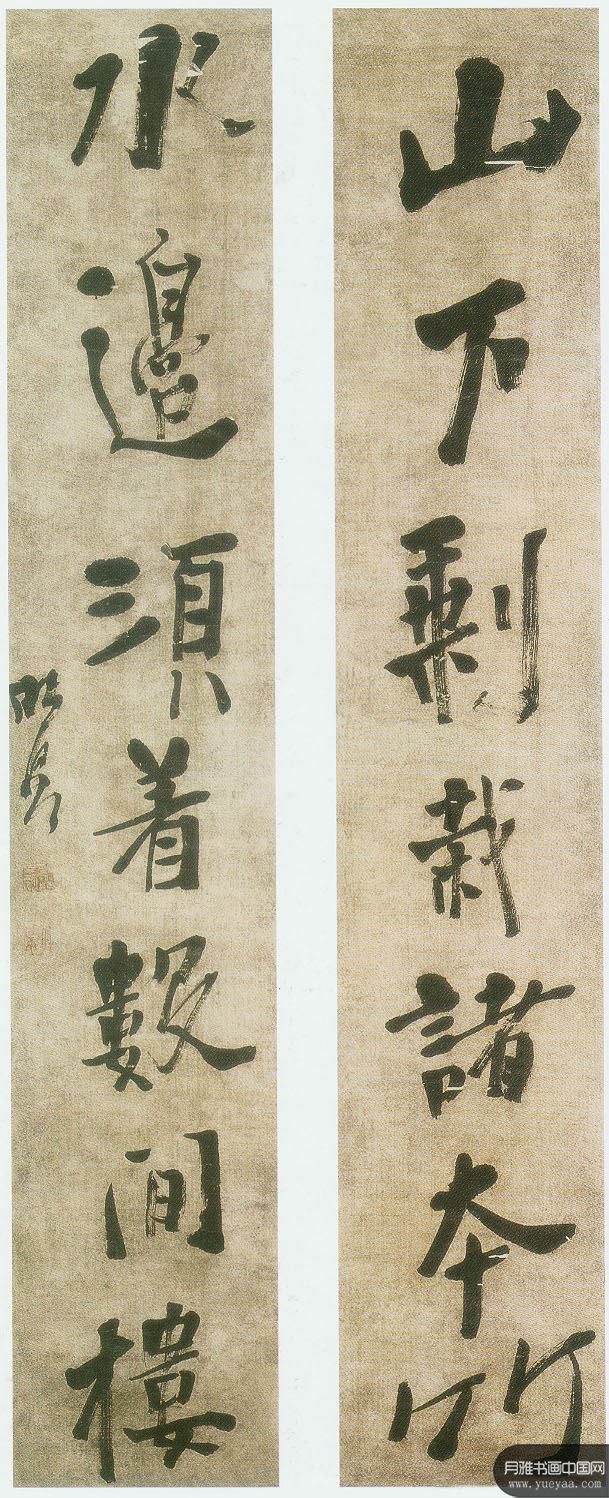 山下剩栽諸本竹
水邊須着數間樓
月雅书画中国网
www.yueyaa.com